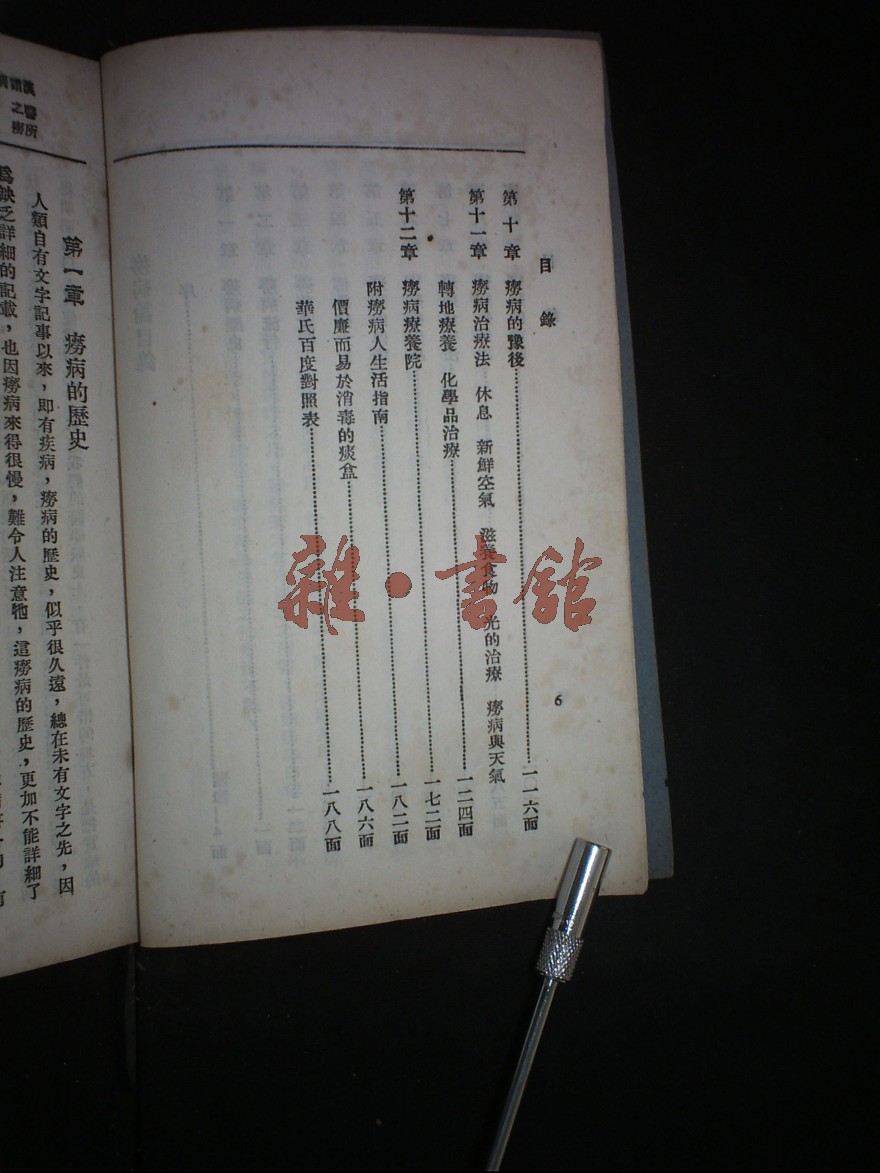 目錄
6
第十章 癆病的豫後 一一六面
第十一章 癆病治療法 休息 新鮮空氣 滋養食物 光的治療 癆病與天氣
轉地療養 化學品治療 一二四面
第十二章 癆病療養院 一七二面
附癆病人生活指南 一八二面
價廉而易於消毒的痰盒 一八六面
華氏百度對照表 一八八面
雜·書館
漢醫所
之癆
第一章 癆病的歷史
人類自有文字記事以來，即有疾病，癆病的歷史，似乎很久遠，總在未有文字之先，因
爲缺乏詳細的記載，也因癆病來得很慢，難令人注意牠，這癆病的歷史，更加不能詳細了